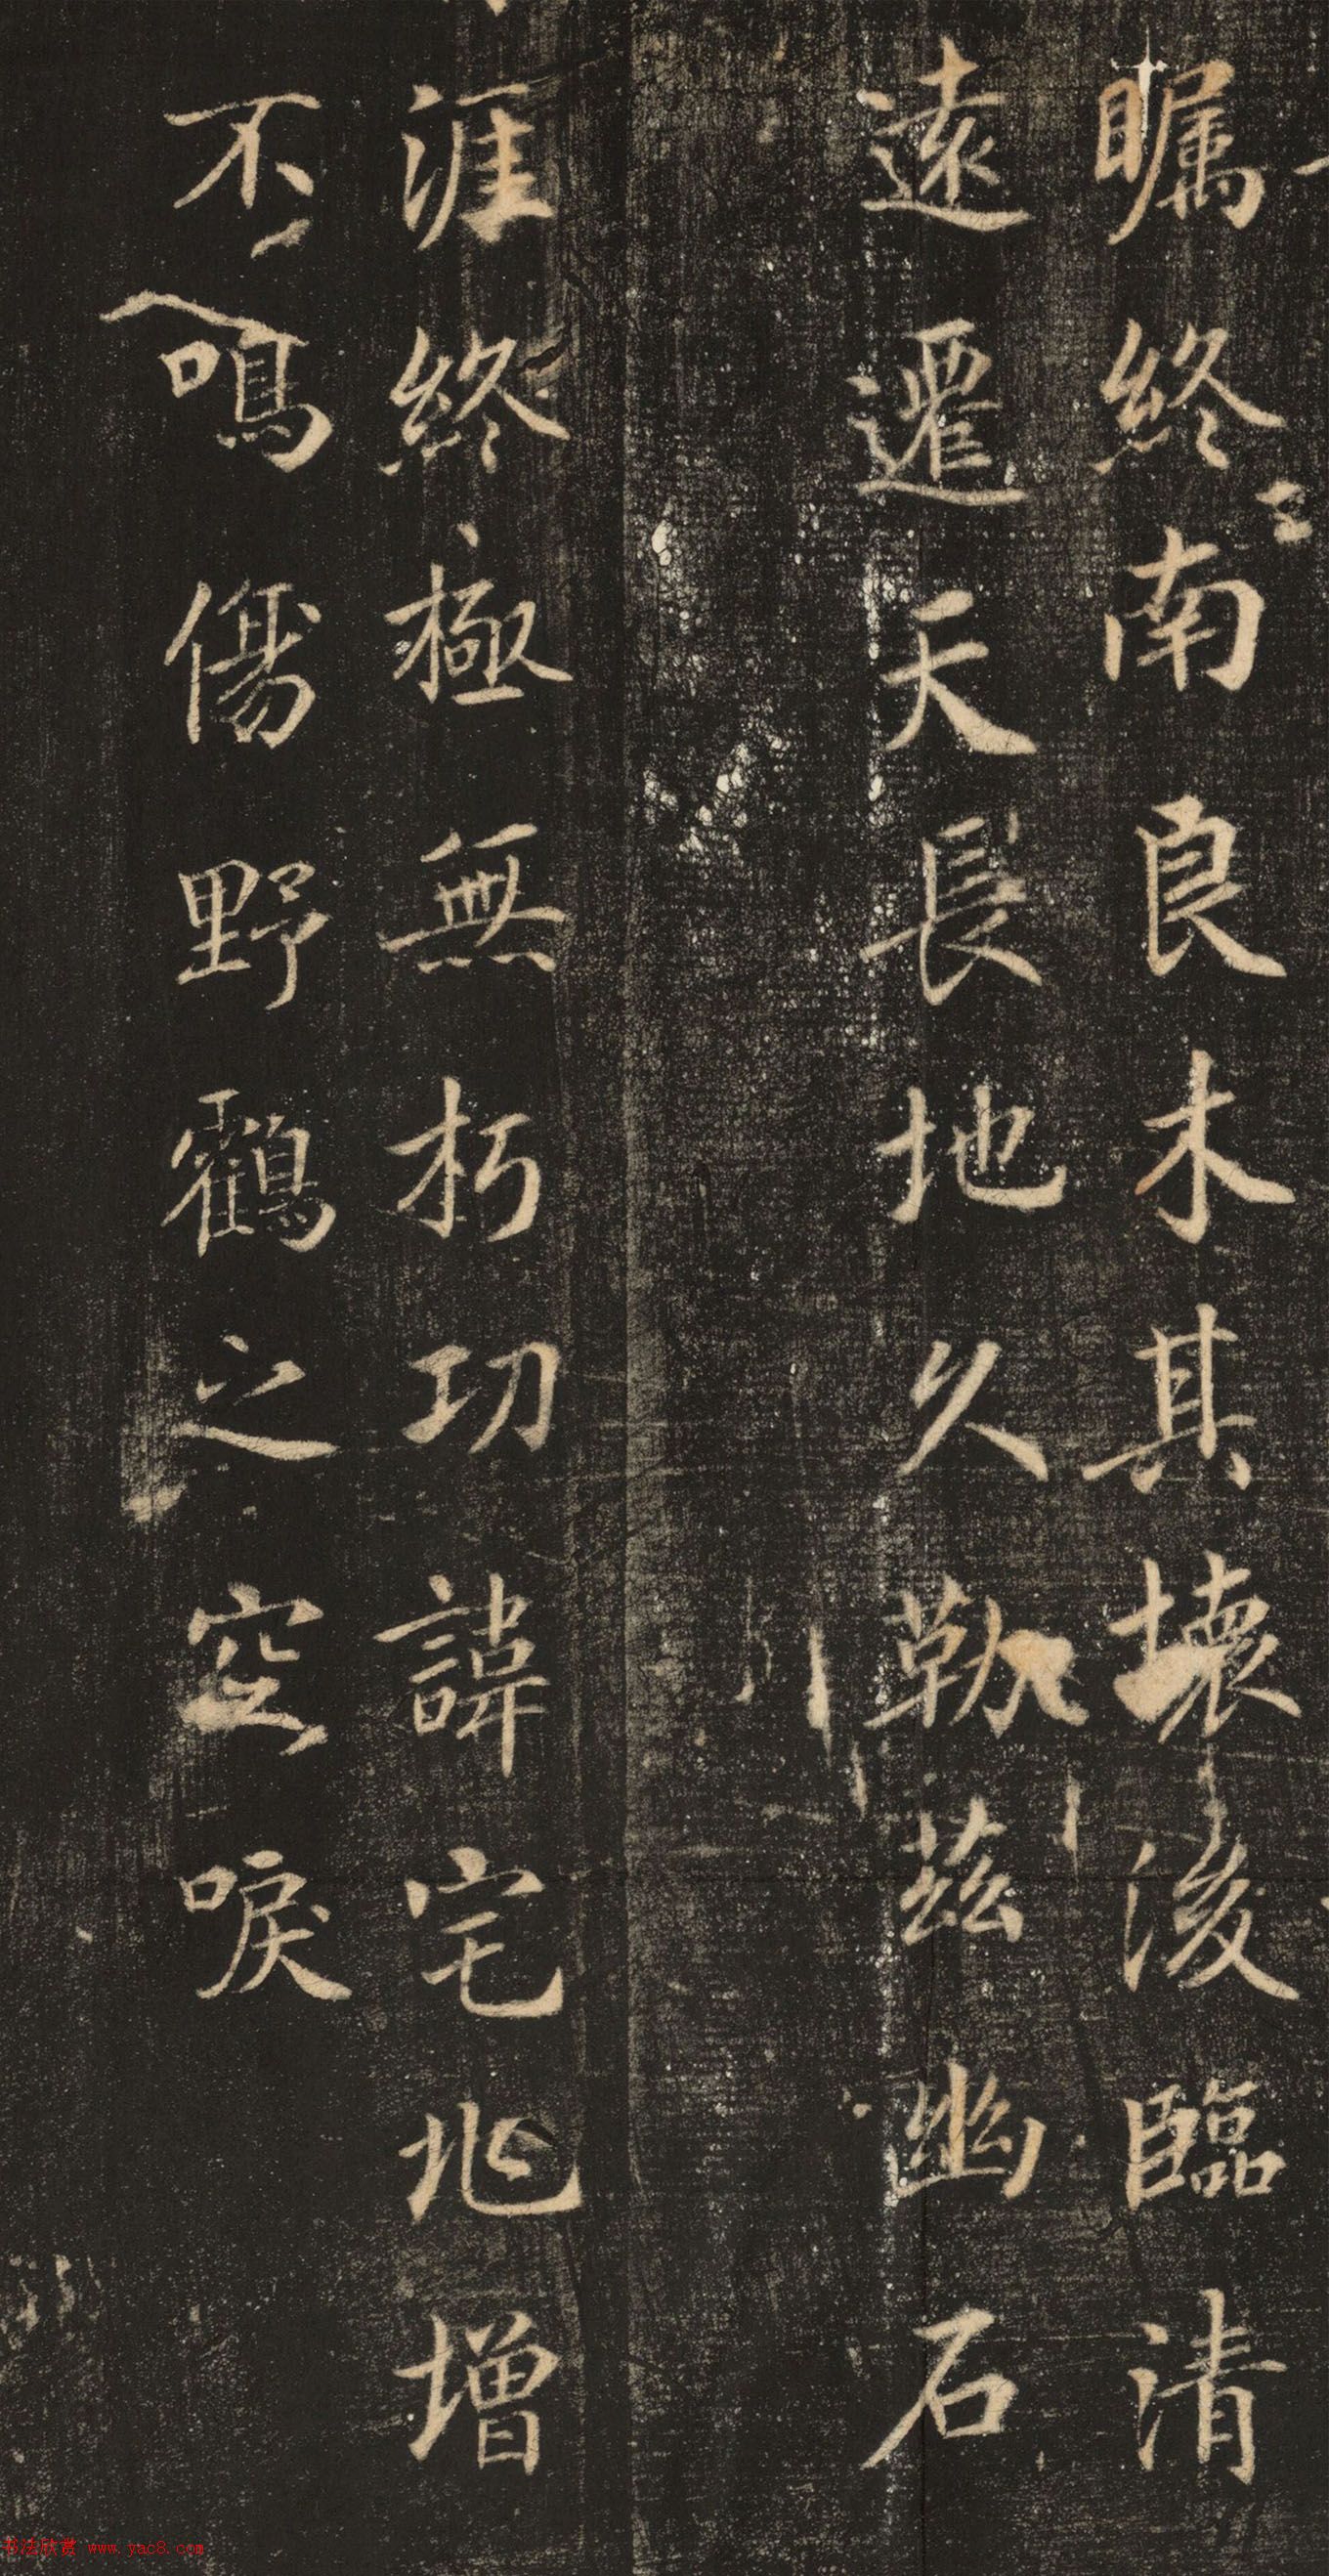 矚終南良木其壞後臨清
遠遷天長地久勒茲幽石
涯終極無朽功諱宅地增
不鳴傷野鶴之空唳
书法欣赏 www.yac8.com